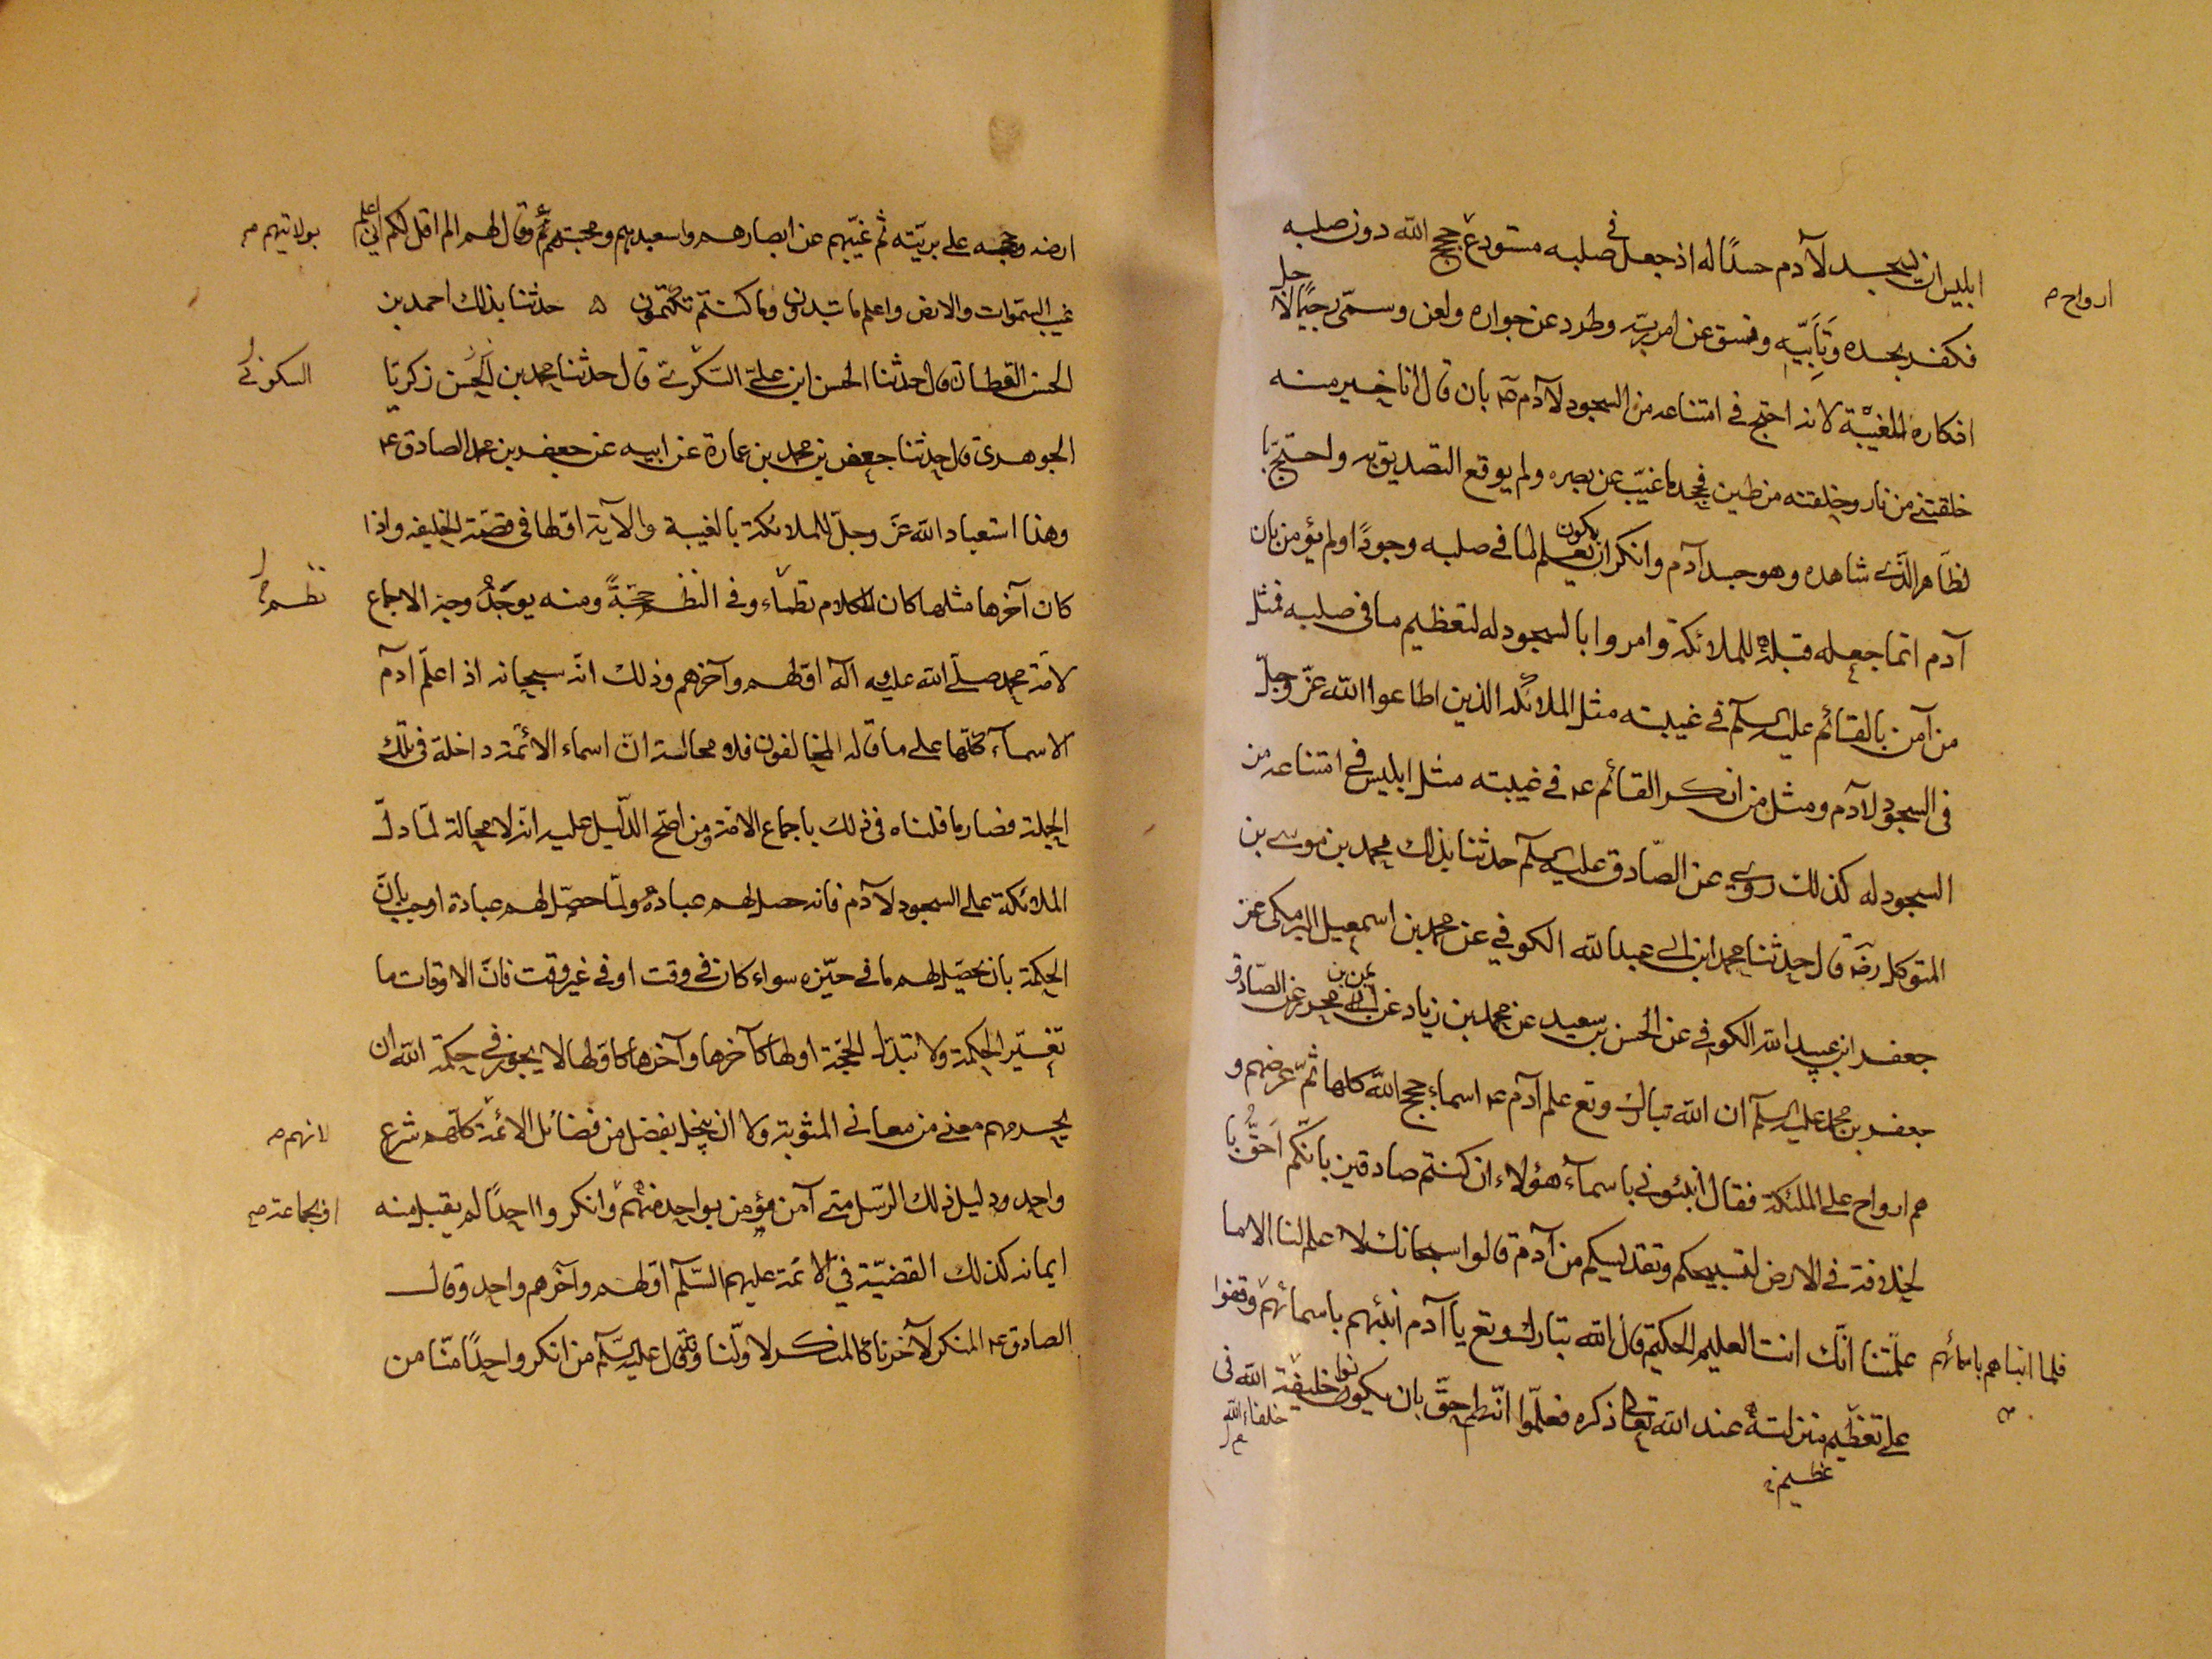 ابليس ان يسجد لآدم حسدًا له اذ جعل في صلبه مستودع حجج الله دون صلبه
ارواح م
فكفر بحسده وتأبّيه وفسق عن امر ربّه وطرد عن جواره ولعن وسمّى رجيمًا لاجل
انكاره للغيبة لانه احتج في امتناعه من السجود لآدم عم بان قال انا خير منه
خلقتنى من نار وخلقته من طين فجحد ما غيّب عن بصره ولم يوقع التصديق به واحتجّ با
لظاهر الّذى شاهده وهو جسد آدم وانكر ان يكون يعلم لما في صلبه وجودًا ولم يؤمن بان
آدم انّما جعله قبلة للملائكة وامروا بالسجود له لتعظيم ما في صلبه فمثل
من آمن بالقائم عليه السلم في غيبته مثل الملائكة الذين اطاعوا الله عزّ وجلّ
فى السجود لآدم ومثل من انكر القائم عم في غيبته مثل ابليس في امتناعه من
السجود له كذلك روى عن الصّادق عليه السلم حدثنا بذلك محمد بن موسى بن
المتوكل رضه قال حدثنا محمد ابن ابى عبدالله الكوفي عن محمد بن اسمعيل البرمكى عن
جعفر ابن عبيد الله الكوفي عن الحسن بن سعيد عن محمد بن زياد عن ايمن بن محرز عن الصّادق
جعفر بن محمد عليه السلم ان الله تبارك وتع علم آدم عم اسماء حجج الله كلها ثمّ عرضهم و
هم ارواح على الملئكة فقال انبئونى باسمآء هؤلاء ان كنتم صادقين بانّكم احقّ با
لخلافة في الارض لتسبيحكم وتقديسكم من آدم قالوا سبحانك لا علم لنا الا ما
علّمتنا انّك انت العليم الحكيم قال الله تبارك وتع يا آدم انبئهم باسمائهم وقفوا
فلما انباهم باسمائهم
على تعظيم منزلته عند الله تعالى ذكره فعلموا انّهم احقّ بان يكونوا خليفة الله فى
خلفاء الله
عظيم
ارضه وحججه على بريّته ثم غيّبهم عن ابصارهم واستعبدهم ومحبتهم وقال لهم الم اقل لكم انى اعلم
بولايتهم م
غيب السموات والارض واعلم ما تبدون وما كنتم تكتمون حدثنا بذلك احمد بن
الحسن القطان قال حدثنا الحسن ابن علىّ السّكرى قال حدثنا محمد بن الحسن زكريّا
السكونى
الجوهرى قال حدثنا جعفر بن محمد بن عمارة عن ابيه عن جعفر بن محمد الصادق عم
وهذا استعباد الله عزّ وجلّ للملائكة بالغيبة والآية اوّلها في قصّة الخليفه واذا
كان آخرها مثلها كان للكلام نظماء وفى النظم حجّةً ومنه يوجد وجه الاجماع
نظم
لامّة محمد صلّى الله عليه وآله اوّلهم وآخرهم وذلك انّه سبحانه اذا علّم آدم
الاسمآء كلّها على ما قاله المخالفون فلا محالة انّ اسماء الائمّة داخلة فى تلك
الجملة فصار ما قلناه فى ذلك باجماع الامّة ومن اصّح الدّليل عليه انّه لا محالة لمّا دلّ
الملائكة على السجود لآدم فانه حصل لهم عبادة ولمّا حصّل لهم عبادة اوجب بان
الحكمة بان يحصّل لهم ما في حيّزه سواء كان فى وقت او فى غير وقت فانّ الاوقات ما
تغيّر الحكمة ولا تبدّل الحجّة اولها كآخرها وآخرها كاوّلها لا يجوز فى حكمة الله ان
يحرمهم معنى من معانى المثوبة ولا ان يبخل بفضل من فضائل الائمّة كلّهم شرع
لانهم م
واحد ودليل ذلك الرّسل متى آمن مؤمن بواحد منهم وانكر واحدًا لم يقبل منه
او بجماعة م
ايمانه كذلك القضيّة في الائمة عليهم السّلم اوّلهم وآخرهم واحد وقال
الصادق عم المنكر لآخرنا كالمنكر لاوّلنا وقال عليه السّلم من انكر واحدًا منّا من